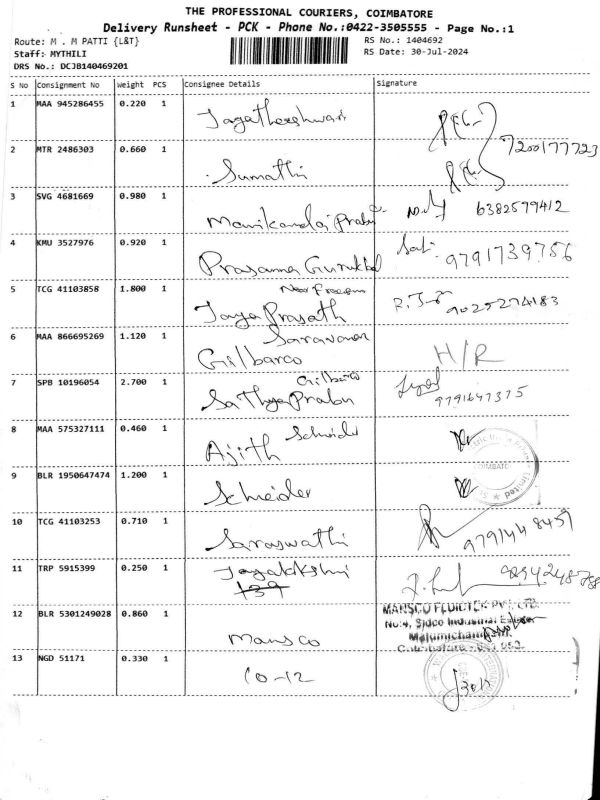 THE PROFESSIONAL COURIERS, COIMBATORE
Delivery Runsheet - PCK - Phone No.:0422-3505555 - Page No.:1
Route: M . M PATTI {L&T} RS No.: 1404692
Staff: MYTHILI RS Date: 30-Jul-2024
DRS No.: DCJB140469201
S No Consignment No Weight PCS Consignee Details Signature
1 MAA 945286455 0.220 1 Jagatheeshwari
7200177723
2 MTR 2486303 0.660 1 Sumathi
3 SVG 4681669 0.980 1 Manikandaprabu 6382579412
4 KMU 3527976 0.920 1 Prasanna Gurukkal 9791739756
5 TCG 41103858 1.800 1 Jaya Prasath 9025274183
6 MAA 866695269 1.120 1 Saravanan
Gilbarco H/R
7 SPB 10196054 2.700 1 Gilbarco
Sathya Prabu 9791647375
8 MAA 575327111 0.460 1 Ajith Schneider
9 BLR 1950647474 1.200 1 Schneider
10 TCG 41103253 0.710 1 Saraswathi
11 TRP 5915399 0.250 1
139
12 BLR 5301249028 0.860 1 Mansco
MANSCO FLUIDTEK PVT. LTD.
No:4, Sidco Industrial Estate
Malumichampatti
Coimbatore
13 NGD 51171 0.330 1 10-12